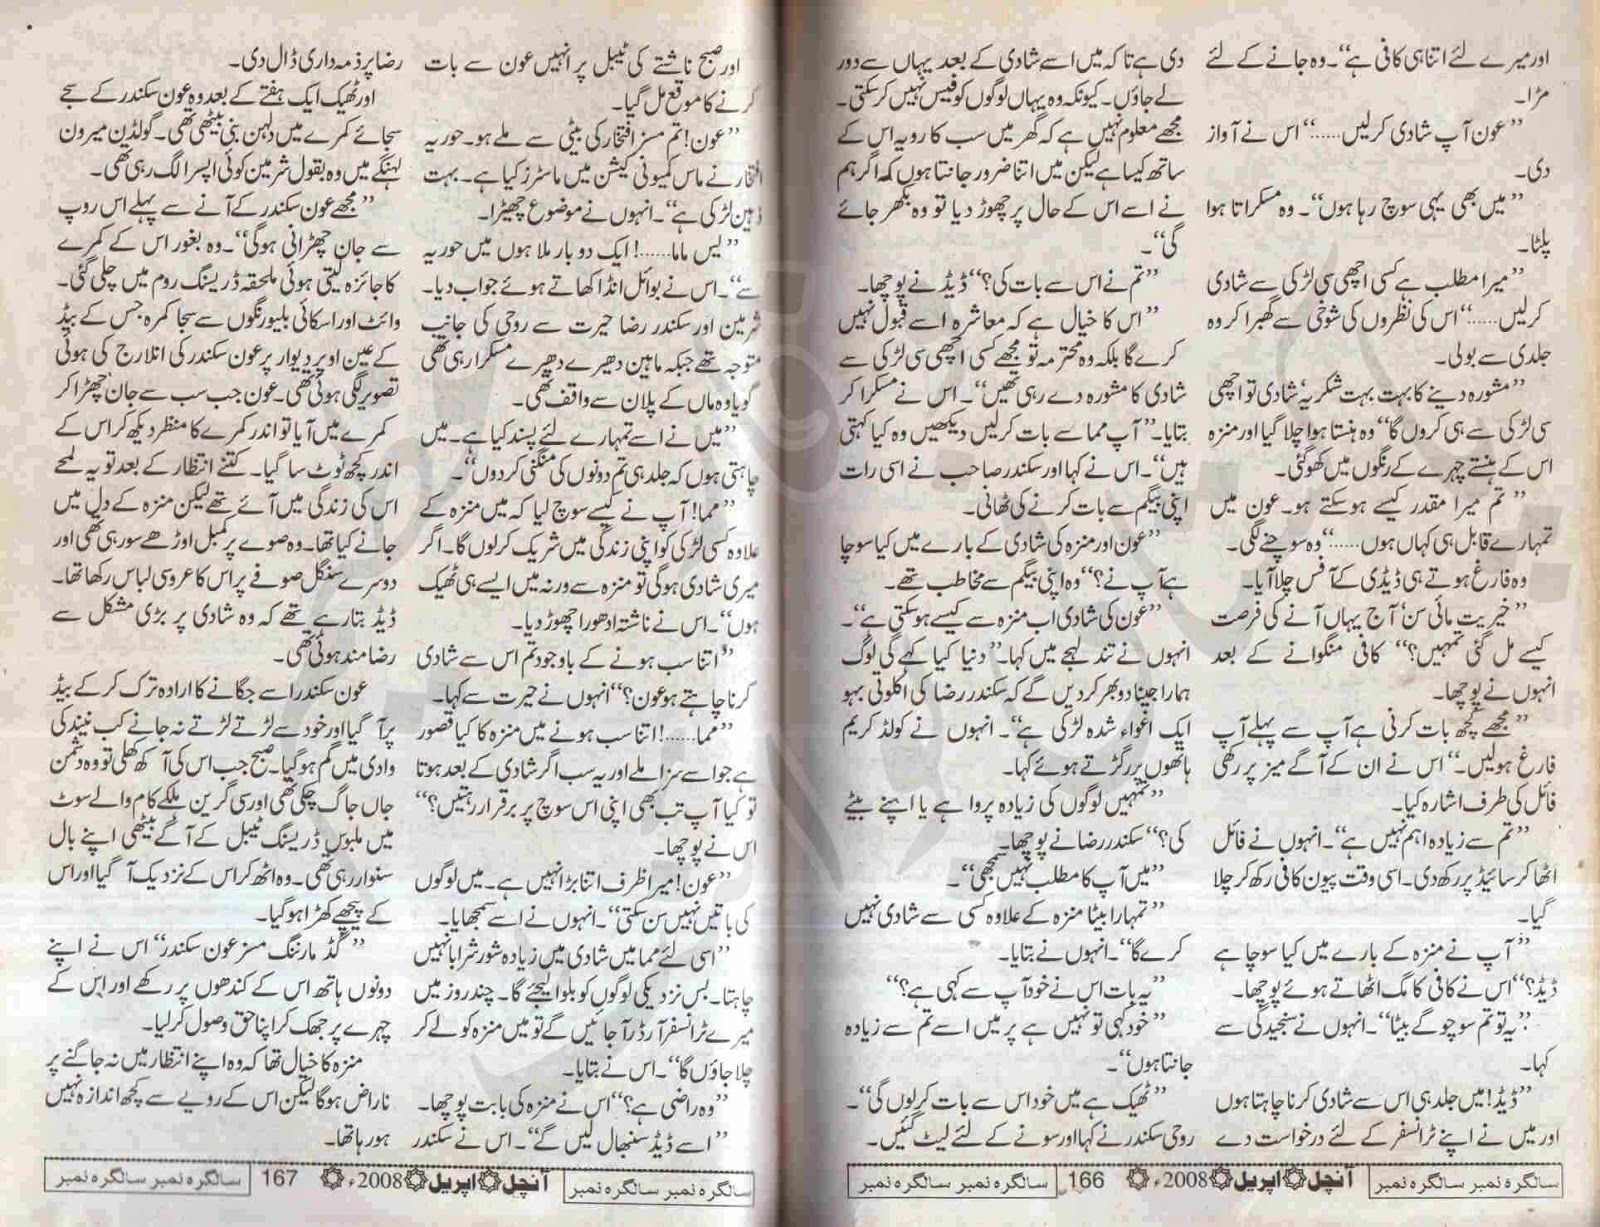 اور میرے لئے اتنا ہی کافی ہے“۔ وہ جانے کے لئے
مڑا۔
”عون آپ شادی کرلیں......“ اس نے آواز
دی۔
”میں بھی یہی سوچ رہا ہوں“۔ وہ مسکراتا ہوا
پلٹا۔
”میرا مطلب ہے کسی اچھی سی لڑکی سے شادی
کرلیں......“ اس کی نظروں کی شوخی سے گھبرا کر وہ
جلدی سے بولی۔
”مشورہ دینے کا بہت بہت شکریہ‘ شادی تو اچھی
سی لڑکی سے ہی کروں گا“ وہ ہنستا ہوا چلا گیا اور منزہ
اس کے ہنستے چہرے کے رنگوں میں کھو گئی۔
”تم میرا مقدر کیسے ہوسکتے ہو۔ عون میں
تمہارے قابل ہی کہاں ہوں......“ وہ سوچنے لگی۔
وہ فارغ ہوتے ہی ڈیڈی کے آفس چلا آیا۔
”خیریت مائی سن‘ آج یہاں آنے کی فرصت
کیسے مل گئی تمہیں؟“ کافی منگوانے کے بعد
انہوں نے پوچھا۔
”مجھے کچھ بات کرنی ہے آپ سے پہلے آپ
فارغ ہولیں۔“ اس نے ان کے آگے میز پر رکھی
فائل کی طرف اشارہ کیا۔
”تم سے زیادہ اہم نہیں ہے“۔ انہوں نے فائل
اٹھا کر سائیڈ پر رکھ دی۔ اسی وقت پیون کافی رکھ کر چلا
گیا۔
”آپ نے منزہ کے بارے میں کیا سوچا ہے
ڈیڈ؟“ اس نے کافی کا مگ اٹھاتے ہوئے پوچھا۔
”یہ تو تم سوچو گے بیٹا“۔ انہوں نے سنجیدگی سے
کہا۔
”ڈیڈ! میں جلد ہی اس سے شادی کرنا چاہتا ہوں
اور میں نے اپنے ٹرانسفر کے لئے درخواست دے
دی ہے تاکہ میں اسے شادی کے بعد یہاں سے دور
لے جاؤں۔ کیونکہ وہ یہاں لوگوں کو فیس نہیں کرسکتی۔
مجھے معلوم نہیں ہے کہ گھر میں سب کا رویہ اس کے
ساتھ کیسا ہے لیکن میں اتنا ضرور جانتا ہوں کہ اگر ہم
نے اسے اس کے حال پر چھوڑ دیا تو وہ بکھر جائے
گی“۔
”تم نے اس سے بات کی؟“ ڈیڈ نے پوچھا۔
”اس کا خیال ہے کہ معاشرہ اسے قبول نہیں
کرے گا بلکہ وہ محترمہ تو مجھے کسی اچھی سی لڑکی سے
شادی کا مشورہ دے رہی تھیں“۔ اس نے مسکرا کر
بتایا۔ ”آپ مما سے بات کرلیں دیکھیں وہ کیا کہتی
ہیں“۔ اس نے کہا اور سکندر صاحب نے اسی رات
اپنی بیگم سے بات کرنے کی ٹھانی۔
”عون اور منزہ کی شادی کے بارے میں کیا سوچا
ہے آپ نے؟“ وہ اپنی بیگم سے مخاطب تھے۔
”عون کی شادی اب منزہ سے کیسے ہوسکتی ہے“۔
انہوں نے تند لہجے میں کہا۔ ”دنیا کیا کہے گی لوگ
ہمارا جینا دوبھر کردیں گے کہ سکندر رضا کی اکلوتی بہو
ایک اغواء شدہ لڑکی ہے“۔ انہوں نے کولڈ کریم
ہاتھوں پر رگڑتے ہوئے کہا۔
”تمہیں لوگوں کی زیادہ پروا ہے یا اپنے بیٹے
کی؟“ سکندر رضا نے پوچھا۔
”میں آپ کا مطلب نہیں سمجھی“۔
”تمہارا بیٹا منزہ کے علاوہ کسی سے شادی نہیں
کرے گا“۔ انہوں نے بتایا۔
”یہ بات اس نے خود آپ سے کہی ہے؟“
”خود کہی تو نہیں ہے پر میں اسے تم سے زیادہ
جانتا ہوں“۔
”ٹھیک ہے میں خود اس سے بات کرلوں گی“۔
روحی سکندر نے کہا اور سونے کے لئے لیٹ گئیں۔
سالگرہ نمبر سالگرہ نمبر آنچل اپریل 2008ء 166 سالگرہ نمبر سالگرہ نمبر
اور صبح ناشتے کی ٹیبل پر انہیں عون سے بات
کرنے کا موقع مل گیا۔
”عون! تم مسز افتخار کی بیٹی سے ملے ہو۔ حوریہ
افتخار نے ماس کمیونی کیشن میں ماسٹرز کیا ہے۔ بہت
ذہین لڑکی ہے“۔ انہوں نے موضوع چھیڑا۔
”یس ماما......! ایک دو بار ملا ہوں میں حوریہ
سے“۔ اس نے بوائل انڈا کھاتے ہوئے جواب دیا۔
شرمین اور سکندر رضا حیرت سے روحی کی جانب
متوجہ تھے جبکہ ماہین دھیرے دھیرے مسکرا رہی تھی
گویا وہ ماں کے پلان سے واقف تھی۔
”میں نے اسے تمہارے لئے پسند کیا ہے۔ میں
چاہتی ہوں کہ جلد ہی تم دونوں کی منگنی کردوں“۔
”مما! آپ نے کیسے سوچ لیا کہ میں منزہ کے
علاوہ کسی لڑکی کو اپنی زندگی میں شریک کرلوں گا۔ اگر
میری شادی ہوگی تو منزہ سے ورنہ میں ایسے ہی ٹھیک
ہوں“۔ اس نے ناشتہ ادھورا چھوڑ دیا۔
”اتنا سب ہونے کے باوجود تم اس سے شادی
کرنا چاہتے ہو عون؟“ انہوں نے حیرت سے کہا۔
”مما......! اتنا سب ہونے میں منزہ کا کیا قصور
ہے جو اسے سزا ملے اور یہ سب اگر شادی کے بعد ہوتا
تو کیا آپ تب بھی اپنی اس سوچ پر برقرار رہتیں؟“
اس نے پوچھا۔
”عون! میرا ظرف اتنا بڑا نہیں ہے۔ میں لوگوں
کی باتیں نہیں سن سکتی“۔ انہوں نے اسے سمجھایا۔
”اسی لئے مما میں شادی میں زیادہ شور شرابا نہیں
چاہتا۔ بس نزدیکی لوگوں کو بلوا لیجئے گا۔ چند روز میں
میرے ٹرانسفر آرڈر آجائیں گے تو میں منزہ کو لے کر
چلا جاؤں گا“۔ اس نے بتایا۔
”وہ راضی ہے؟“ اس نے منزہ کی بابت پوچھا۔
”اسے ڈیڈ سنبھال لیں گے“۔ اس نے سکندر
رضا پر ذمہ داری ڈال دی۔
اور ٹھیک ایک ہفتے کے بعد وہ عون سکندر کے سجے
سجائے کمرے میں دلہن بنی بیٹھی تھی۔ گولڈن میرون
لہنگے میں وہ بقول شرمین کوئی اپسرا لگ رہی تھی۔
”مجھے عون سکندر کے آنے سے پہلے اس روپ
سے جان چھڑانی ہوگی“۔ وہ بغور اس کے کمرے
کا جائزہ لیتی ہوئی ملحقہ ڈریسنگ روم میں چلی گئی۔
وائٹ اور اسکائی بلیو رنگوں سے سجا کمرہ جس کے بیڈ
کے عین اوپر دیوار پر عون سکندر کی انلارج کی ہوئی
تصویر لگی ہوئی تھی۔ عون جب سب سے جان چھڑا کر
کمرے میں آیا تو اندر کمرے کا منظر دیکھ کر اس کے
اندر کچھ ٹوٹ سا گیا۔ کتنے انتظار کے بعد تو یہ لمحے
اس کی زندگی میں آئے تھے لیکن منزہ کے دل میں
جانے کیا تھا۔ وہ صوفے پر کمبل اوڑھے سو رہی تھی اور
دوسرے سنگل صوفے پر اس کا عروسی لباس رکھا تھا۔
ڈیڈ بتا رہے تھے کہ وہ شادی پر بڑی مشکل سے
رضامند ہوئی تھی۔
عون سکندر اسے جگانے کا ارادہ ترک کرکے بیڈ
پر آگیا اور خود سے لڑتے لڑتے نہ جانے کب نیند کی
وادی میں گم ہوگیا۔ صبح جب اس کی آنکھ کھلی تو وہ دشمن
جاں جاگ چکی تھی اور سی گرین ہلکے کام والے سوٹ
میں ملبوس ڈریسنگ ٹیبل کے آگے بیٹھی اپنے بال
سنوار رہی تھی۔ وہ اٹھ کر اس کے نزدیک آگیا اور اس
کے پیچھے کھڑا ہوگیا۔
”گڈ مارننگ مسز عون سکندر“ اس نے اپنے
دونوں ہاتھ اس کے کندھوں پر رکھے اور اس کے
چہرے پر جھک کر اپنا حق وصول کرلیا۔
منزہ کا خیال تھا کہ وہ اپنے انتظار میں نہ جاگنے پر
ناراض ہوگا لیکن اس کے رویے سے کچھ اندازہ نہیں
ہورہا تھا۔
سالگرہ نمبر سالگرہ نمبر آنچل اپریل 2008ء 167 سالگرہ نمبر سالگرہ نمبر